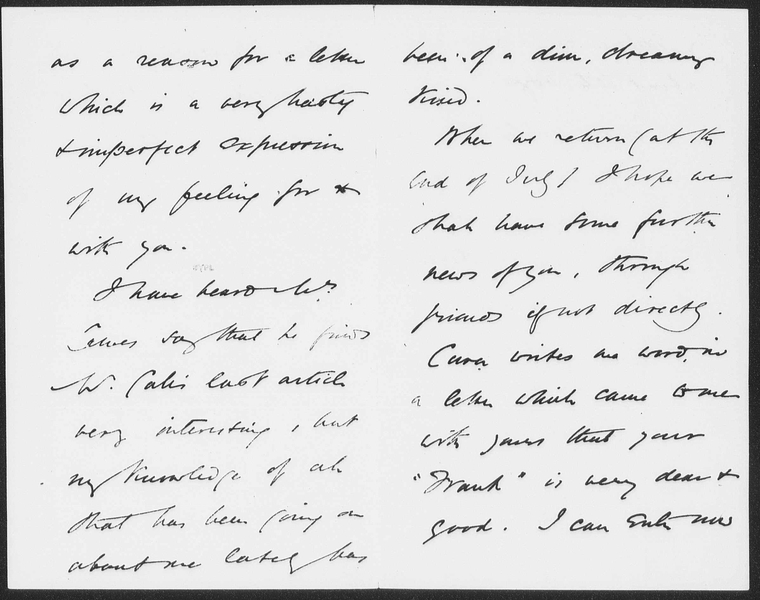 as a reason for a letter
which is a very hasty
& imperfect expression
of my feeling for &
with you.
I have heard Mr.
Lewes say that he finds
Mr. Call's last article
very interesting, but
my knowledge of all
that has been going on
about me lately has
been of a dim, dreamy
kind.
When we return (at the
end of July) I hope we
shall have some further
news of you, through
friends if not directly.
Cara writes me word, in
a letter which came to me
with yours that your
"Frank" is very dear &
good. I can enter now